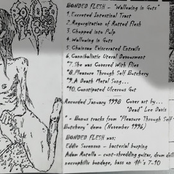 BONDED FLESH - "Wallowing in Guts"
1. Excreted Intestinal Tract
2. Regurgitation of Rotted Flesh
3. Chopped into Pulp
4. Wallowing in Guts
5. Chainsaw Eviscerated Entrails
6. Cannibalistic Uteral Devourment
7. She was Covered With Flies
*8. Pleasure Through Self Butchery
*9. A Death Metal Song...
*10. Constipated Ulcerous Gut
Recorded January 1998 Cover art by...
"Dead" Lee Davis
* = Bonus tracks from "Pleasure Through Self
Butchery" demo (November 1996)
BONDED FLESH was:
Eddie Sorenson - bacterial burping
Adam Rotella - gut-shredding guitar, drum
susceptible bondage, bass on #'s 7-10